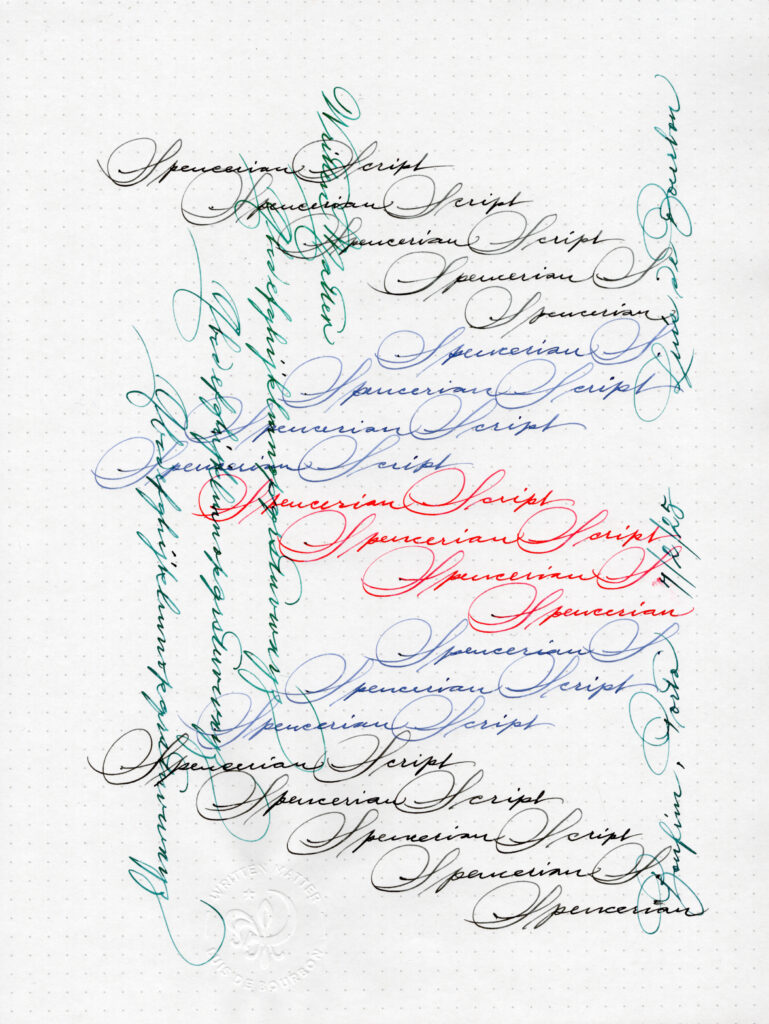 Spencerian Script
Spencerian Script
Spencerian Script
Spencerian S
Spencerian
Spencerian S
Spencerian Script
Spencerian Script
Spencerian Script
Spencerian Script
Spencerian Script
Spencerian S
Spencerian
Spencerian S
Spencerian Script
Spencerian Script
Spencerian Script
Spencerian Script
Spencerian Script
Spencerian S
Spencerian
Written Matter
Abcdefghijklmnopqrstuvwxyz
Abcdefghijklmnopqrstuvwxyz
Abcdefghijklmnopqrstuvwxyz
Bonfim, Porto
Luis de Bourbon
WRITTEN MATTER
LUIS DE BOURBON